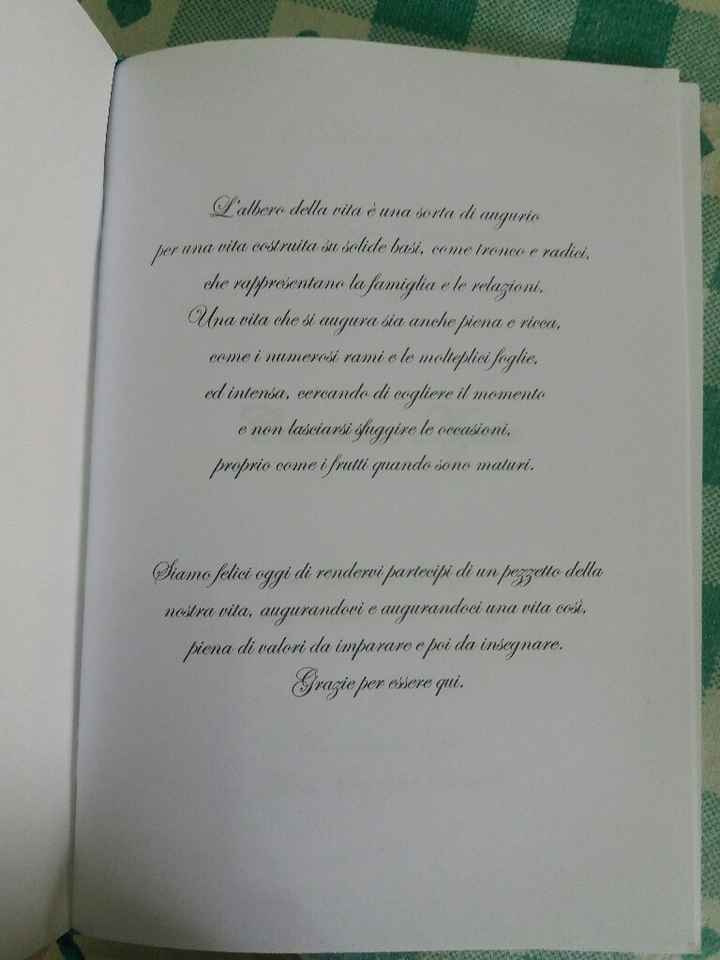 L'albero della vita è una sorta di augurio
per una vita costruita su solide basi, come tronco e radici,
che rappresentano la famiglia e le relazioni.
Una vita che si augura sia anche piena e ricca,
come i numerosi rami e le molteplici foglie,
ed intensa, cercando di cogliere il momento
e non lasciarsi sfuggire le occasioni,
proprio come i frutti quando sono maturi.
Siamo felici oggi di rendervi partecipi di un pezzetto della
nostra vita, augurandovi e augurandoci una vita così,
piena di valori da imparare e poi da insegnare.
Grazie per essere qui.